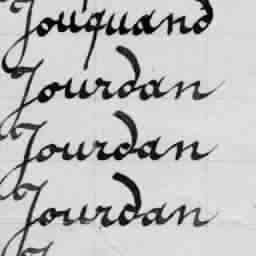 Jouquand
Jourdan
Jourdan
Jourdan